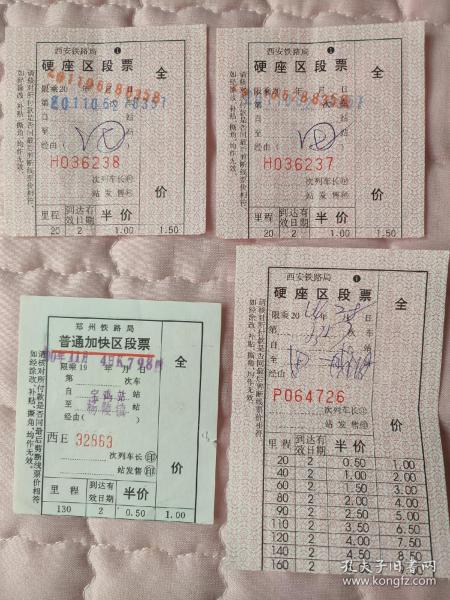 西安铁路局 ❶
硬座区段票
全价
限乘20 年 月 日
第 次 车
自 站
至 站
经由( )
H036238
次列车长㊞
站发售㊞
里程 到达有效日期 半价
20 2 1.00 1.50
请核对所付款是否同最后剪断线票价相符。
如经涂改、补贴、撕角,均作无效。
西安铁路局 ❶
硬座区段票
全价
限乘20 年 月 日
第 次 车
自 站
至 站
经由( )
H036237
次列车长㊞
站发售㊞
里程 到达有效日期 半价
20 2 1.00 1.50
请核对所付款是否同最后剪断线票价相符。
如经涂改、补贴、撕角,均作无效。
郑州铁路局
普通加快区段票
全价
限乘19 年 月 日
第 次车
自 宝鸡 站
至 杨陵镇 站
经由( )
西E 32863
次列车长㊞
站发售㊞
里程 到达有效日期 半价
130 2 0.50 1.00
请核对所付款是否同最后剪断线票价相符
如经涂改、补贴、撕角,均作无效。
西安铁路局 ❶
硬座区段票
全价
限乘20 年 月 日
第 次 车
自 站
至 站
经由( )
P064726
次列车长㊞
站发售㊞
里程 到达有效日期 半价
20 2 0.50 1.00
40 2 1.00 2.00
60 2 1.50 3.00
80 2 2.00 4.00
90 2 2.50 5.00
110 2 3.50 6.50
120 2 4.00 7.50
140 2 4.50 8.50
160 2
请核对所付款是否同最后剪断线票价相符
如经涂改、补贴、撕角,均作无效。
孔夫子旧书网